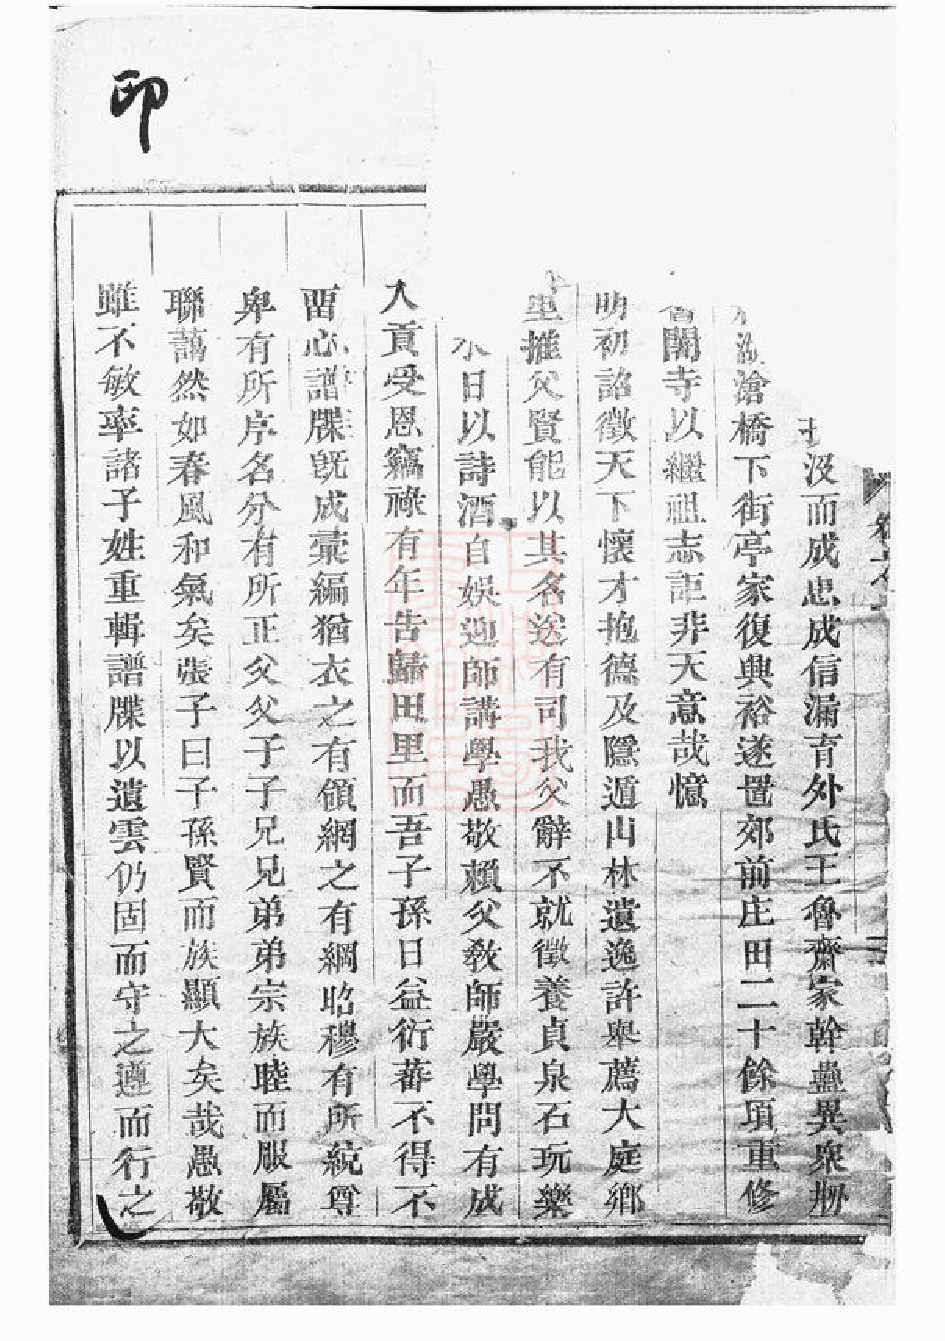 印
没而成忠成信漏育外氏王魯齋家幹蠱異衆剏
滄橋下街亭家復興裕遂置郊前庄田二十餘項重修
闢寺以繼祖志詎非天意哉憶
明初詔徵天下懷才抱德及隱遁山林遺逸許舉薦大庭鄉
里推父賢能以其名送有司我父辭不就徵養貞泉石玩樂
水日以詩酒自娛迎師講學愚敬賴父教師嚴學問有成
入貢受恩竊祿有年告歸田里而吾子孫日益衍蕃不得不
畱心譜牒旣成彙編猶衣之有領網之有綱昭穆有所統尊
卑有所序名分有所正父父子子兄兄弟弟宗族睦而服屬
聯藹然如春風和氣矣張子曰子孫賢而族顯大矣哉愚敬
雖不敏率諸子姓重輯譜牒以遺雲仍固而守之遵而行之